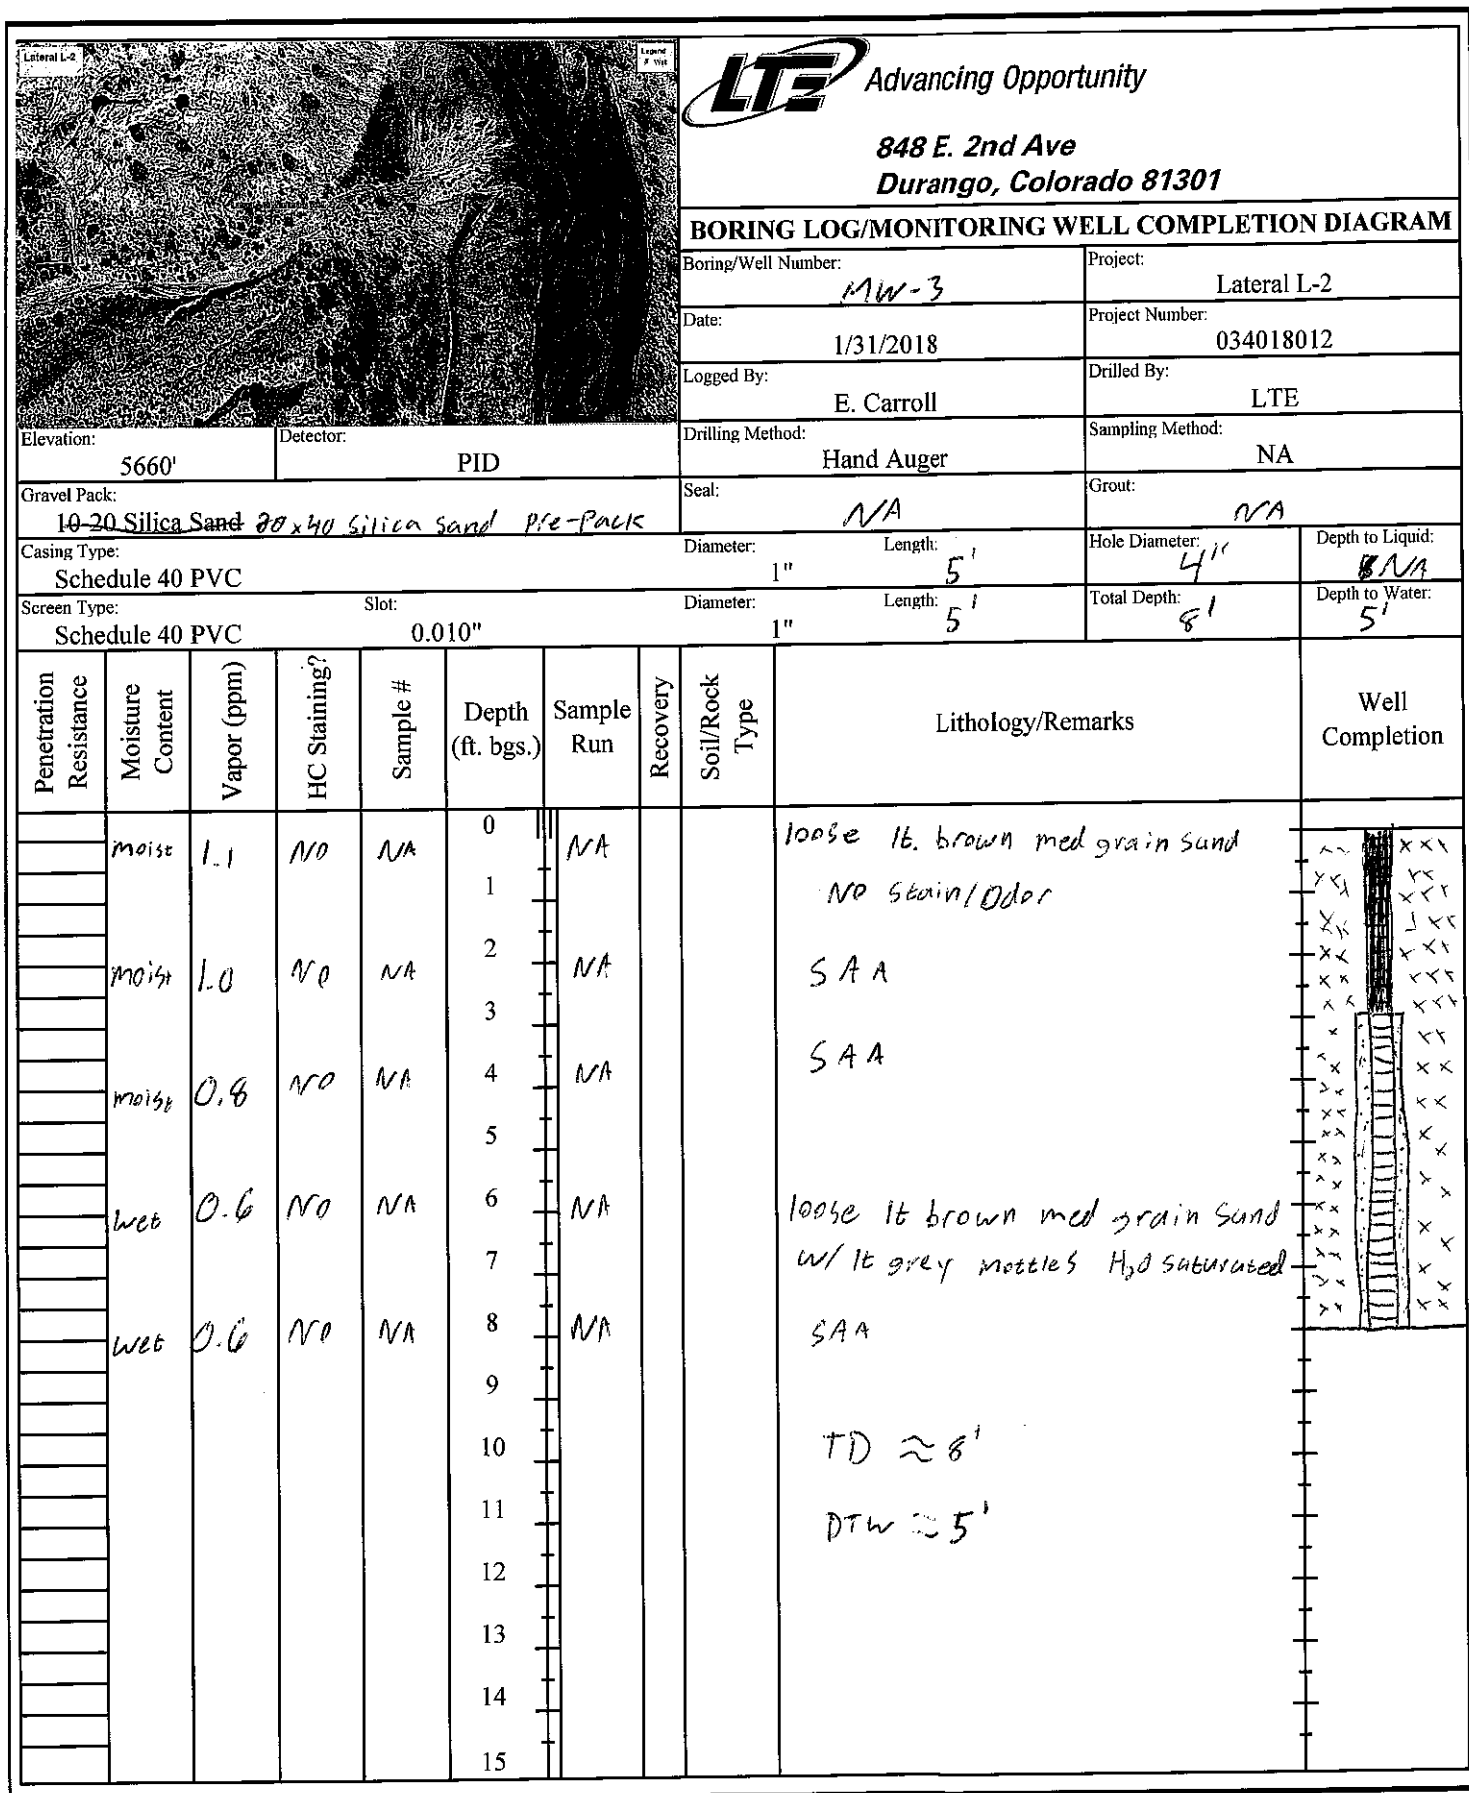 Lateral L-2
Legend
LTE Advancing Opportunity
848 E. 2nd Ave
Durango, Colorado 81301
BORING LOG/MONITORING WELL COMPLETION DIAGRAM
Boring/Well Number: MW-3 Project: Lateral L-2
Date: 1/31/2018 Project Number: 034018012
Logged By: E. Carroll Drilled By: LTE
Elevation: 5660' Detector: PID Drilling Method: Hand Auger Sampling Method: NA
Gravel Pack: 10-20 Silica Sand 20x40 silica sand pre-Pack Seal: NA Grout: NA
Casing Type: Schedule 40 PVC Diameter: 1" Length: 5' Hole Diameter: 4" Depth to Liquid: NA
Screen Type: Schedule 40 PVC Slot: 0.010" Diameter: 1" Length: 5' Total Depth: 8' Depth to Water: 5'
Penetration Resistance Moisture Content Vapor (ppm) HC Staining? Sample # Depth (ft. bgs.) Sample Run Recovery Soil/Rock Type Lithology/Remarks Well Completion
0
moist 1.1 NO NA NA loose lt. brown med grain sand
1 No Stain/Odor
2
moist 1.0 NO NA NA SAA
3
SAA
moist 0.8 NO NA 4 NA
5
wet 0.6 NO NA 6 NA loose lt brown med grain sand
7 w/ lt grey mottles H2O saturated
wet 0.6 NO NA 8 NA SAA
9
10 TD ≈ 8'
11 DTW ≈ 5'
12
13
14
15